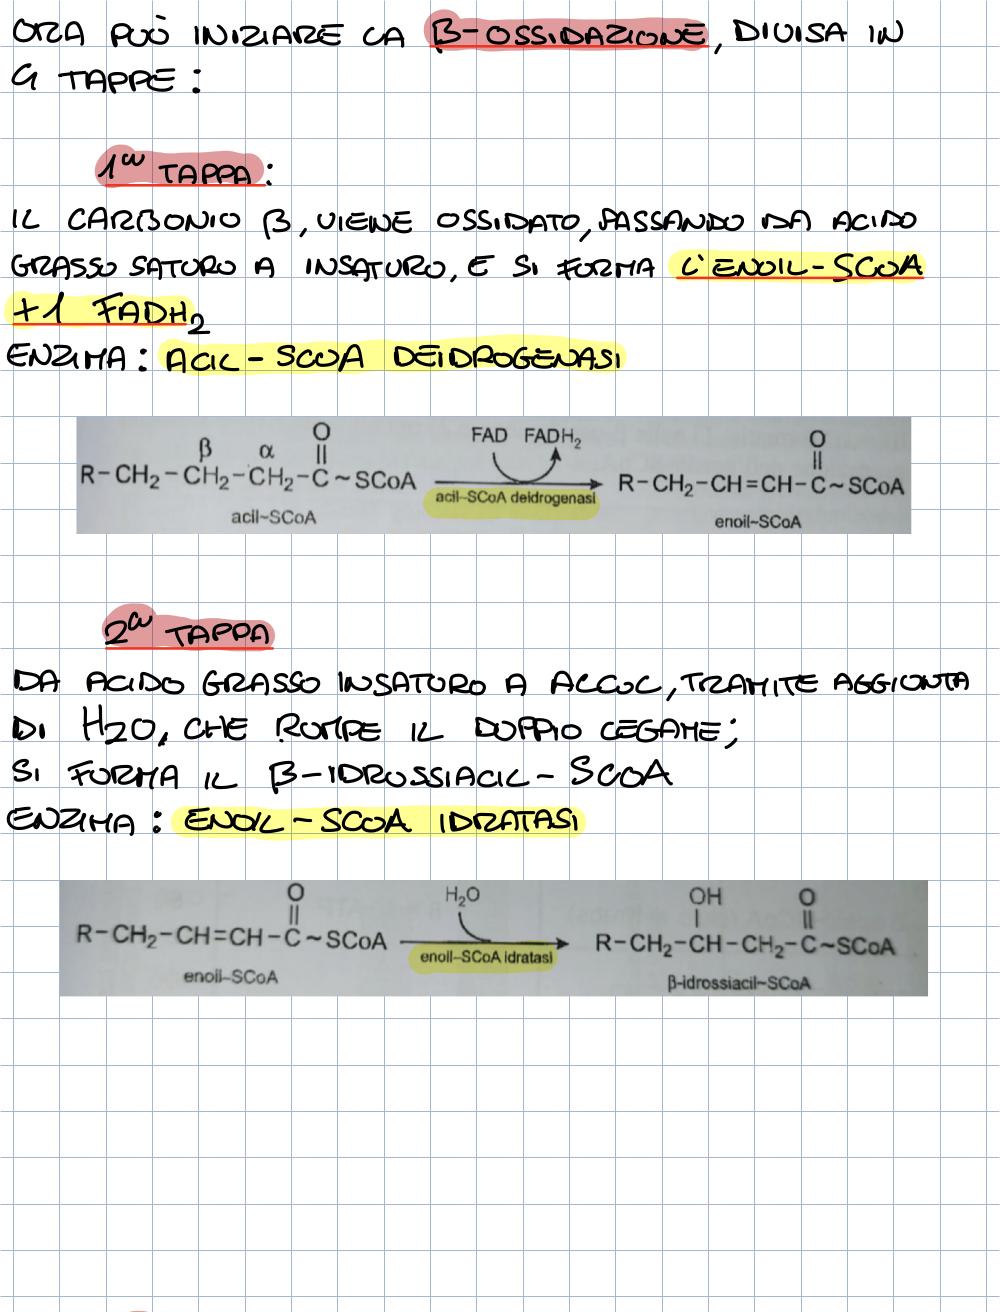 ORA PUÒ INIZIARE LA β-OSSIDAZIONE, DIVISA IN
4 TAPPE:
1ª TAPPA:
IL CARBONIO β, VIENE OSSIDATO, PASSANDO DA ACIDO
GRASSO SATURO A INSATURO, E SI FORMA L'ENOIL-SCOA
+1 FADH2
ENZIMA: ACIL-SCOA DEIDROGENASI
β α O FAD FADH₂ O
R-CH₂-CH₂-CH₂-C~SCoA acil-SCoA deidrogenasi R-CH₂-CH=CH-C~SCoA
acil~SCoA enoil~SCoA
2ª TAPPA
DA ACIDO GRASSO INSATURO A ALCOL, TRAMITE AGGIUNTA
DI H2O, CHE ROMPE IL DOPPIO LEGAME;
SI FORMA IL β-IDROSSIACIL-SCOA
ENZIMA: ENOIL-SCOA IDRATASI
O H₂O OH O
R-CH₂-CH=CH-C~SCoA enoil-SCoA idratasi R-CH₂-CH-CH₂-C~SCoA
enoil-SCoA β-idrossiacil~SCoA